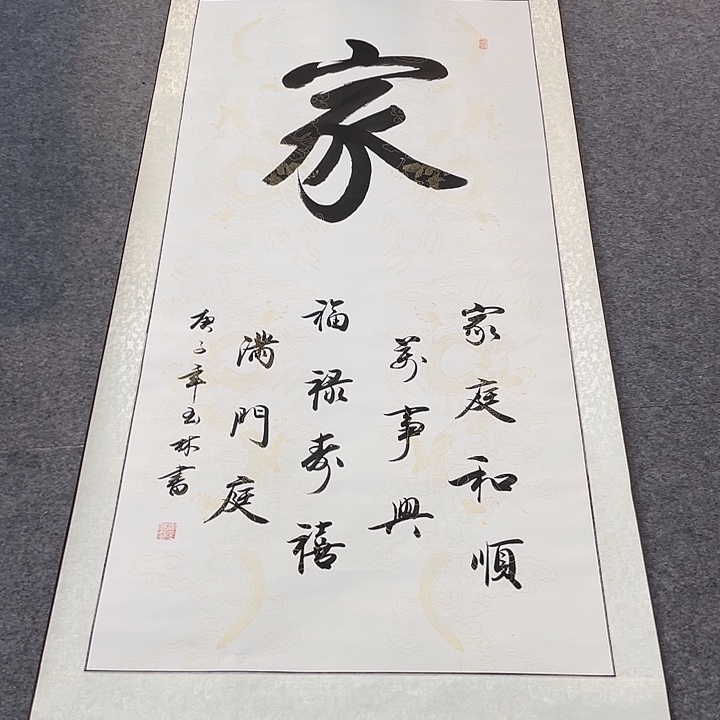 家
家庭和順
萬事興
福禄寿禧
满門庭
庚子年玉林書